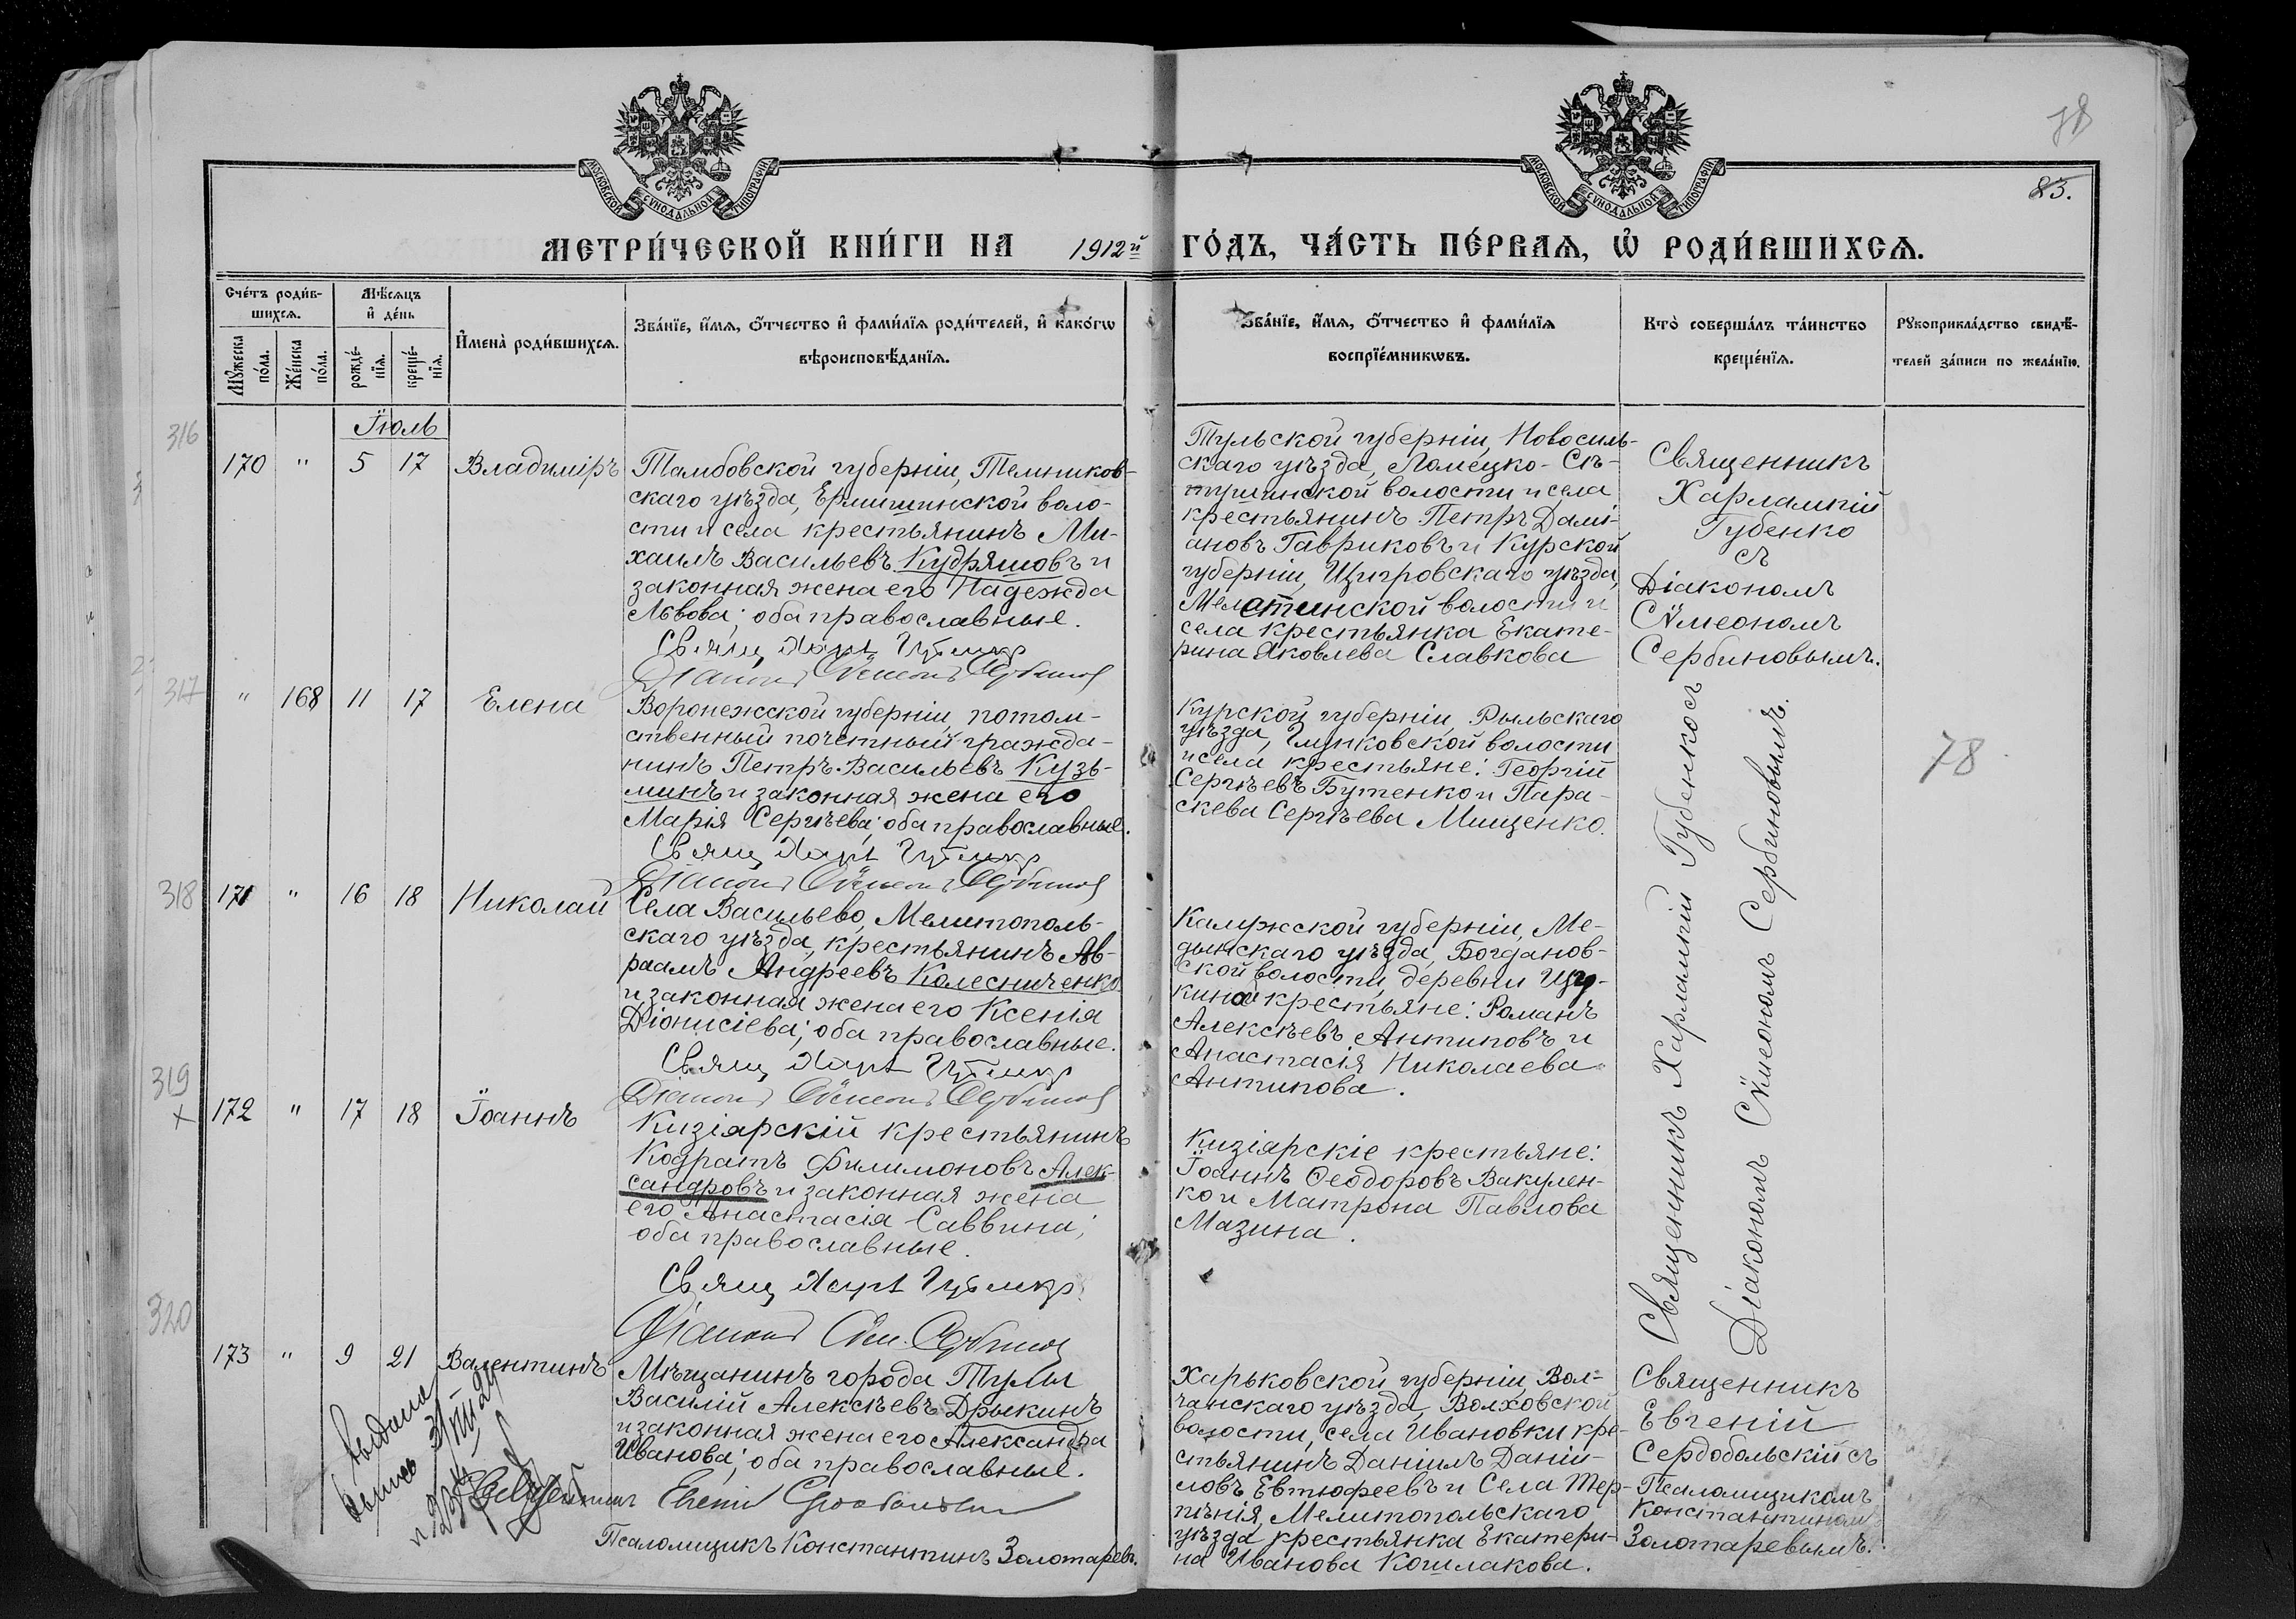 78
83.
МОСКОВСКОЙ СѴНОДАЛЬНОЙ ТИПОГРАФІИ
МОСКОВСКОЙ СѴНОДАЛЬНОЙ ТИПОГРАФІИ
МЕТРИ́ЧЕСКОЙ КНИ́ГИ НА 1912й ГО́ДЪ, ЧА́СТЬ ПЕ́РВАЯ, Ѡ҆ РОДИ́ВШИХСЯ.
Сче́тъ роди́в-
шихся.
Мѣ́сяцъ
и҆ де́нь
Мꙋ́жеска по́ла.
Же́нска по́ла.
рожде́-
нїя.
креще́-
нїя.
И҆мена̀ роди́вшихся.
Зва́нїе, и҆́мя, ѻ҆́тчество и҆ фами́лїя роди́телей, и҆ како́гѡ
вѣроисповѣ́данїя.
Зва́нїе, и҆́мя, ѻ҆́тчество и҆ фами́лїя
воспрїе́мникѡвъ.
Кто̀ соверша́лъ та́инство
креще́нїя.
Рꙋкоприкла́дство свидѣ́-
телей за́писи по жела́нїю.
Іюль
316
170 " 5 17 Владиміръ
Тамбовской губерніи, Темников-
скаго уѣзда, Ермишинской воло-
сти и села крестьянинъ Ми-
хаилъ Васильевъ Кудряшовъ и
законная жена его Надежда
Львова; оба православные.
Свящ. Харл. Губенко
Діаконъ Сѵмеонъ Сербиновъ
Тульской губерніи, Новосиль-
скаго уѣзда, Ломецко-Ст-
тушинской волости и села
крестьянинъ Петръ Дамі-
ановъ Гавриковъ и Курской
губерніи, Щигровскаго уѣзда,
Мелатинской волости и
села крестьянка Екате-
рина Яковлева Славкова
Священникъ
Харлампій
Губенко
съ
Діакономъ
Сѵмеономъ
Сербиновымъ.
317
" 168 11 17 Елена
Воронежской губерніи, потом-
ственный почетный гражда-
нинъ Петръ Васильевъ Кузь-
минъ и законная жена его
Марія Сергѣева; оба православные.
Свящ. Харл. Губенко
Діаконъ Сѵмеонъ Сербиновъ
Курской губерніи, Рыльскаго
уѣзда, Глушковской волости
и села крестьяне: Георгій
Сергѣевъ Бутенко и Пара-
скева Сергѣева Мищенко.
Священникъ Харлампій Губенко съ
Діакономъ Сѵмеономъ Сербиновымъ.
78
318
171 " 16 18 Николай
Села Васильево, Мелитополь-
скаго уѣзда, крестьянинъ Ав-
раамъ Андреевъ Колесниченко
и законная жена его Ксенія
Діонисіева; оба православные.
Свящ. Харл. Губенко
Діаконъ Сѵмеонъ Сербиновъ
Калужской губерніи, Ме-
дынскаго уѣзда, Богданов-
ской волости, деревни Щу-
киной крестьяне: Романъ
Алексѣевъ Антиповъ и
Анастасія Николаева
Антипова.
319
×
172 " 17 18 Іоаннъ
Кизіярскій крестьянинъ
Кодратъ Филимоновъ Алек-
сандровъ и законная жена
его Анастасія Саввина;
оба православные.
Свящ. Харл. Губенко
Діаконъ Сѵм. Сербиновъ
Кизіярскіе крестьяне:
Іоаннъ Ѳеодоровъ Вакулен-
ко и Матрона Павлова
Мазина.
320
173 " 9 21 Валентинъ
Мѣщанинъ города Тулы
Василій Алексѣевъ Дрыкинъ
и законная жена его Александра
Иванова; оба православные.
Священникъ Евгеній Сердобольскій
Псаломщикъ Константинъ Золотаревъ.
Харьковской губерніи, Вол-
чанскаго уѣзда, Волховской
волости, села Ивановки кре-
стьянинъ Даніилъ Даніи-
ловъ Евтюфеевъ и Села Тер-
пѣнія, Мелитопольскаго
уѣзда крестьянка Екатери-
на Иванова Кошлакова.
Священникъ
Евгеній
Сердобольскій съ
Псаломщикомъ
Константиномъ
Золотаревымъ.
выдана
выпись